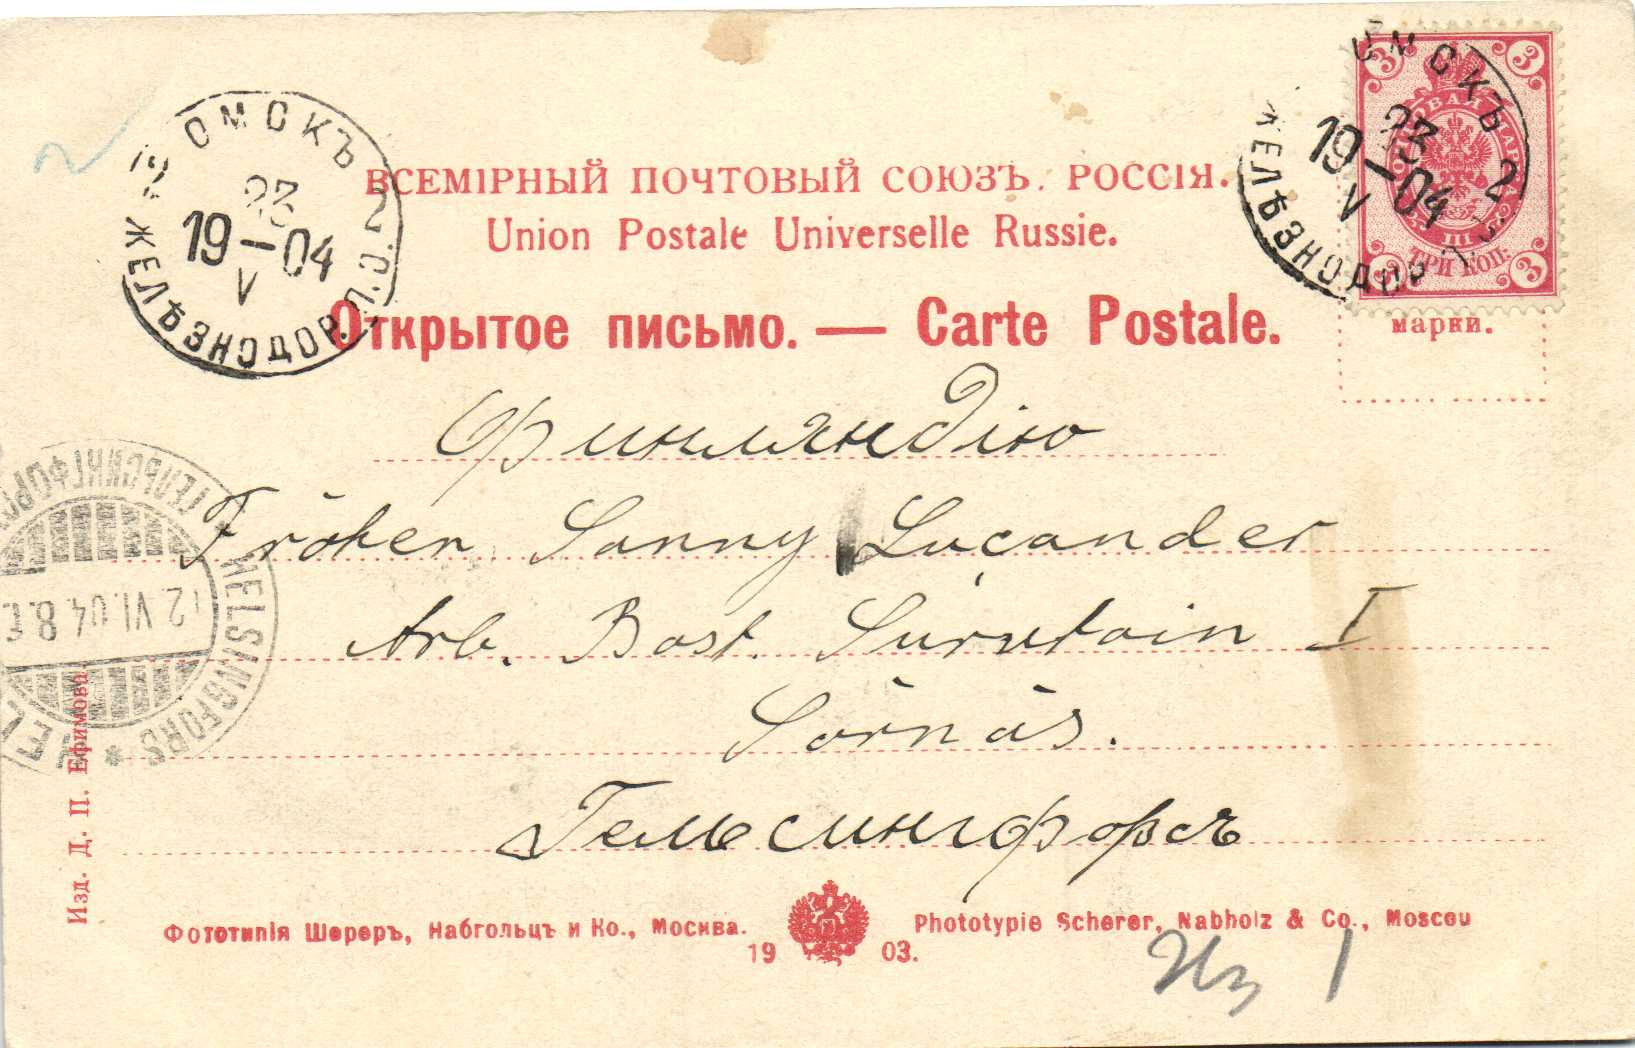 ВСЕМІРНЫЙ ПОЧТОВЫЙ СОЮЗЪ. РОССІЯ.
Union Postale Universelle Russie.
Открытое письмо. — Carte Postale.
марки.
ОМСКЪ 2
23
19—04
V
ЖЕЛѢЗНОДОР. П. О. 2
ОМСКЪ 2
23
19—04
V
ЖЕЛѢЗНОДОР. П.
3 3
ТРИ КОП.
3 3
Финляндію
Fröken Sanny Lucander
Arb. Bost.
I
Sörnäs.
Гельсингфорсъ
ГЕЛЬСИНГФОРС
HELSINGFORS
2.VI.04.8.
HEL
Изд. Д. П. Ефимова
Фототипія Шереръ, Набгольцъ и Ко., Москва.
Phototypie Scherer, Nabholz & Co., Moscou
19 03.
Из 1